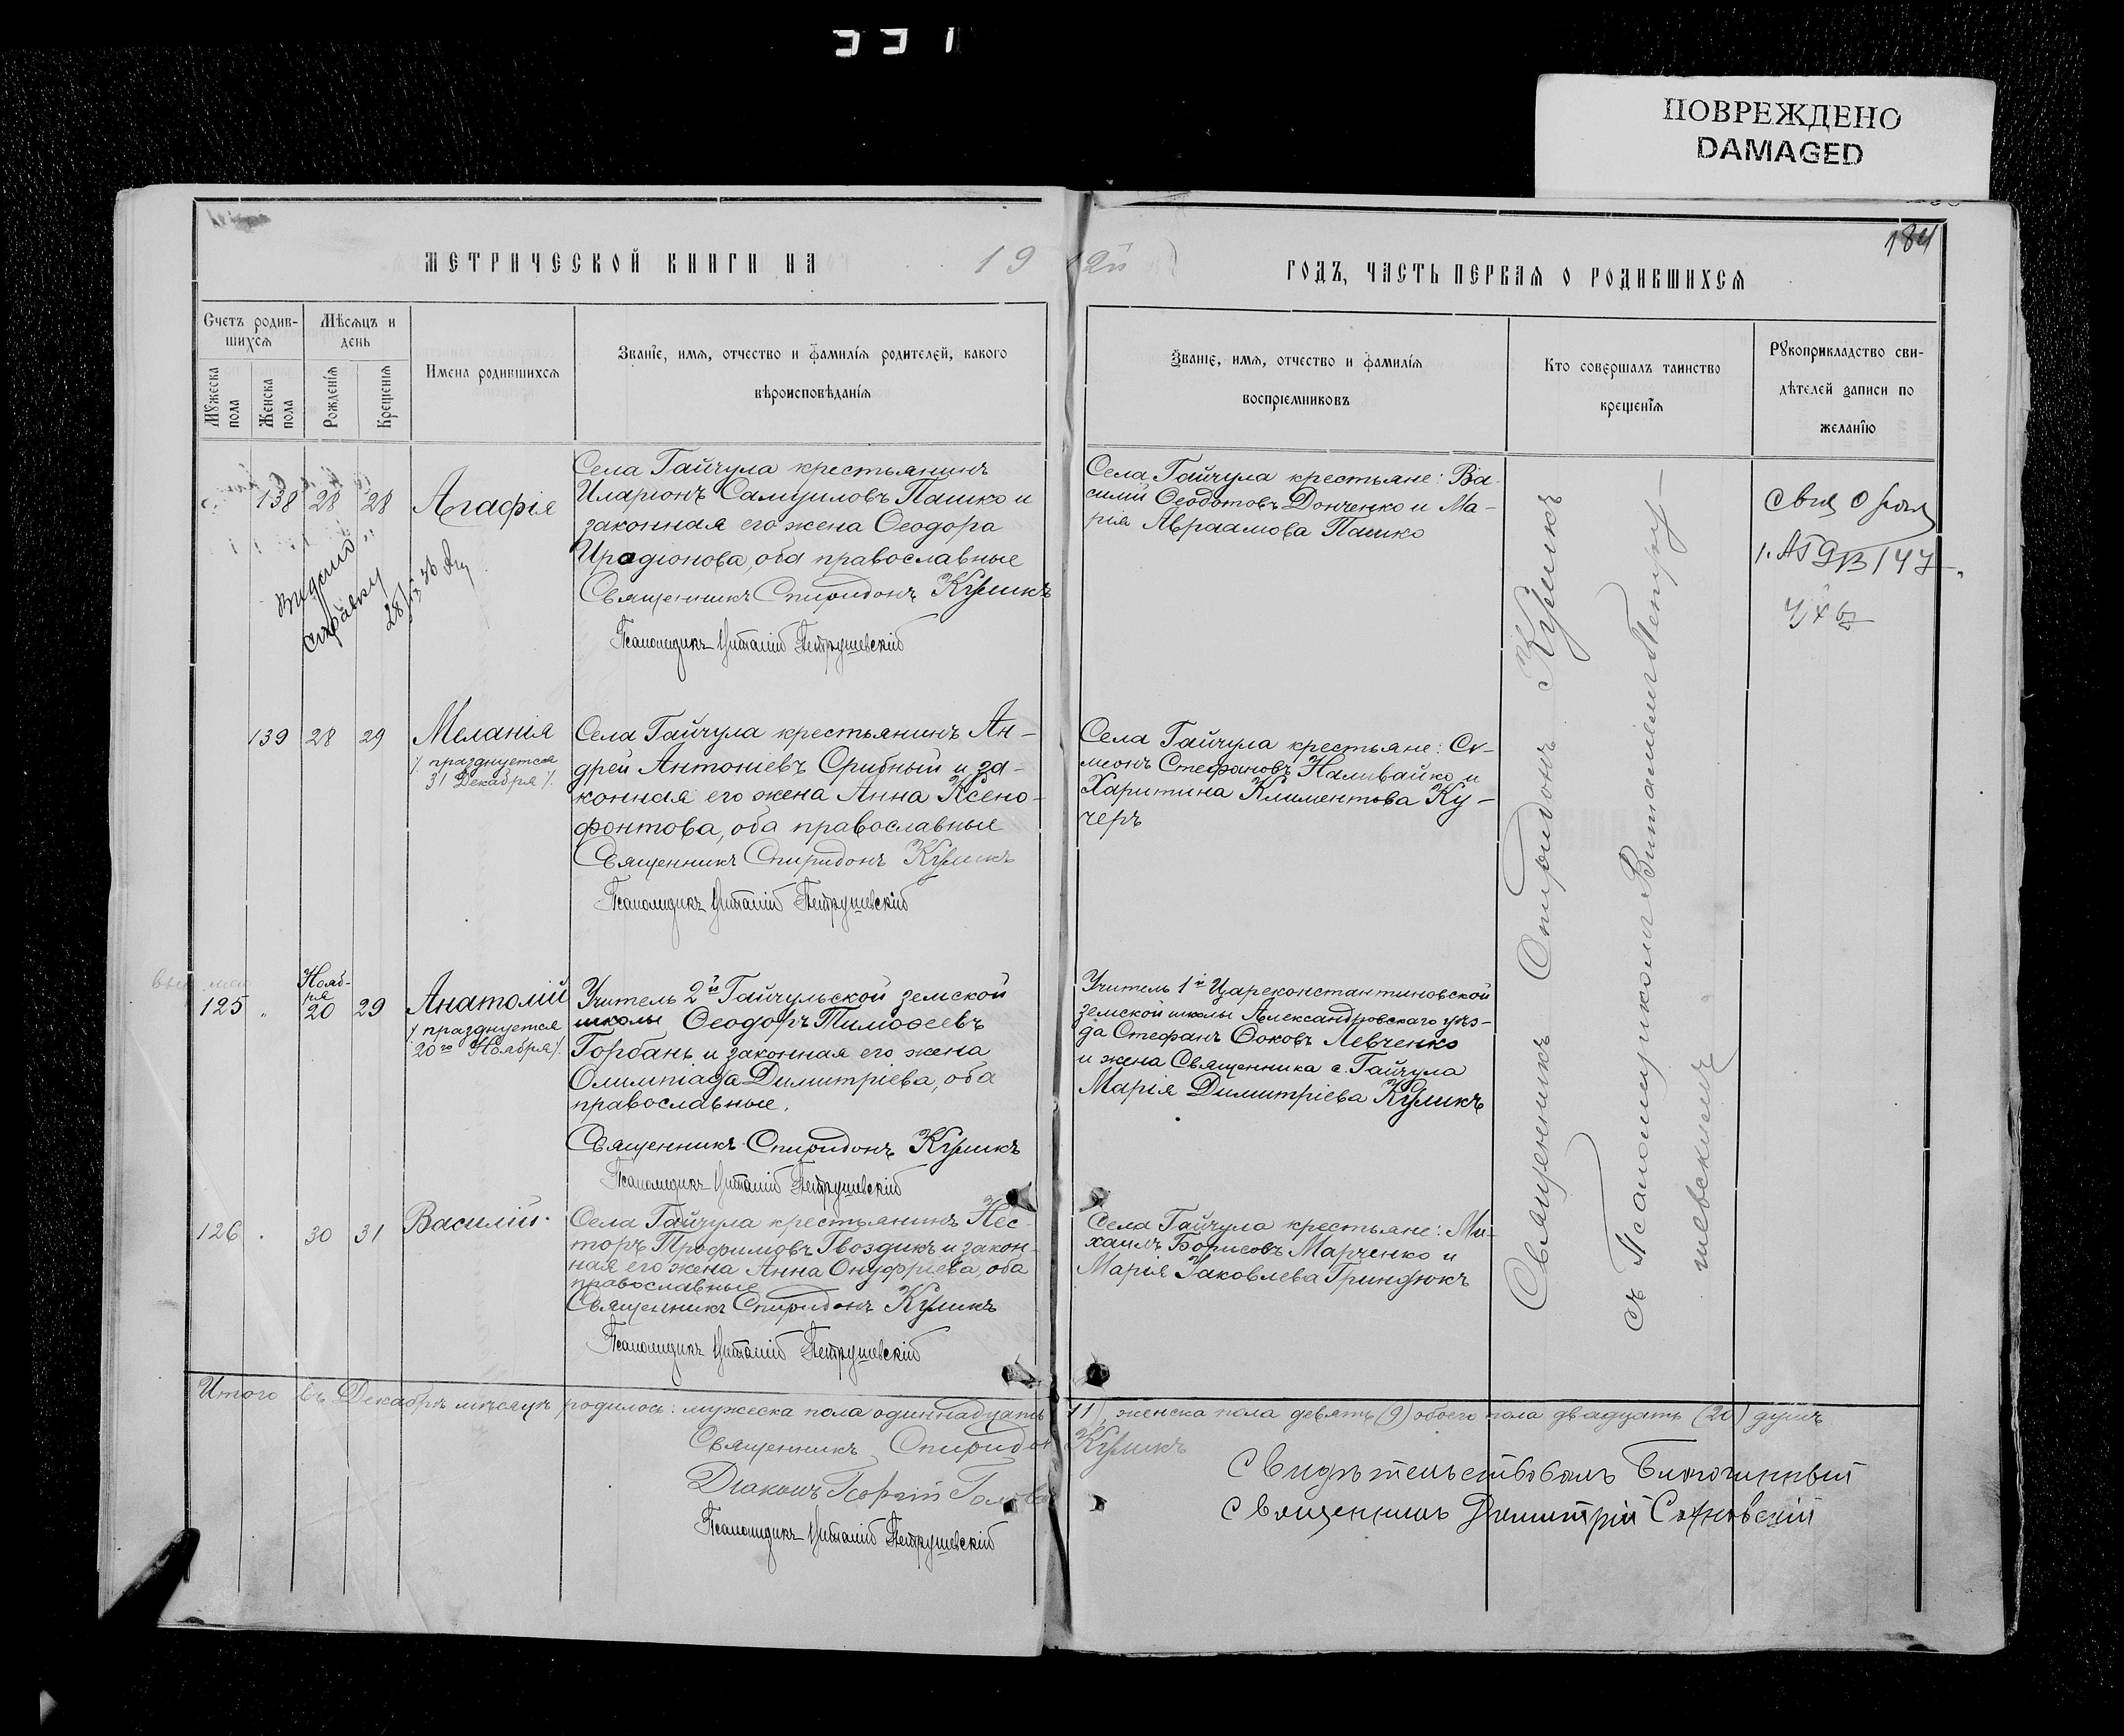 331
ПОВРЕЖДЕНО
DAMAGED
184
МЕТРИЧЕСКОЙ КНИГИ НА 1912й ГОДЪ, ЧАСТЬ ПЕРВАЯ О РОДИВШИХСЯ
Счетъ родив-
шихся
Мѣсяцъ и
день
Мужеска
пола
Женска
пола
Рожденія
Крещенія
Имена родившихся
Званіе, имя, отчество и фамилія родителей, какого
вѣроисповѣданія
Званіе, имя, отчество и фамилія
воспріемниковъ
Кто совершалъ таинство
крещенія
Рукоприкладство сви-
дѣтелей записи по
желанію
138 28 28 Агафія
выдано
справку
Села Гайчула крестьянинъ
Иларіонъ Самуиловъ Пашко и
законная его жена Ѳеодора
Иродіонова, оба православные
Священникъ Спиридонъ Куликъ
Псаломщикъ Виталій Петрушевскій
Села Гайчула крестьяне: Ва-
силій Ѳеодотовъ Донченко и Ма-
рія Авраамова Пашко
139 28 29 Меланія
/. празднуется
31 Декабря /.
Села Гайчула крестьянинъ Ан-
дрей Антоніевъ Срибный и за-
конная его жена Анна Ксено-
фонтова, оба православные
Священникъ Спиридонъ Куликъ
Псаломщикъ Виталій Петрушевскій
Села Гайчула крестьяне: Си-
меонъ Стефановъ Наливайко и
Харитина Климентова Ку-
черъ
Нояб-
ря
125 " 20 29 Анатолій
/. празднуется
20го Ноября /.
Учитель 2й Гайчульской земской
школы Ѳеодоръ Тимоѳеевъ
Горбань и законная его жена
Олимпіада Димитріева, оба
православные.
Священникъ Спиридонъ Куликъ
Псаломщикъ Виталій Петрушевскій
Учитель 1й Цареконстантиновской
земской школы Александровскаго уѣз-
да Стефанъ Ѳоковъ Левченко
и жена Священника с. Гайчула
Марія Димитріева Куликъ
126 . 30 31 Василій.
Села Гайчула крестьянинъ Нес-
торъ Трофимовъ Гвоздикъ и закон-
ная его жена Анна Онуфріева, оба
православные
Священникъ Спиридонъ Куликъ
Псаломщикъ Виталій Петрушевскій
Села Гайчула крестьяне: Ми-
хаилъ Борисовъ Марченко и
Марія Іаковлева Гриндюкъ
Священникъ Спиридонъ Куликъ
съ Псаломщикомъ Виталіемъ Петру-
шевскимъ
Итого въ Декабрѣ мѣсяцѣ родилось: мужеска пола одиннадцать 11), женска пола девять (9) обоего пола двадцать (20) душъ
Священникъ Спиридонъ Куликъ
Діаконъ Георгій
Псаломщикъ Виталій Петрушевскій
Свидѣтельствовалъ Благочинный
Священникъ Димитрій